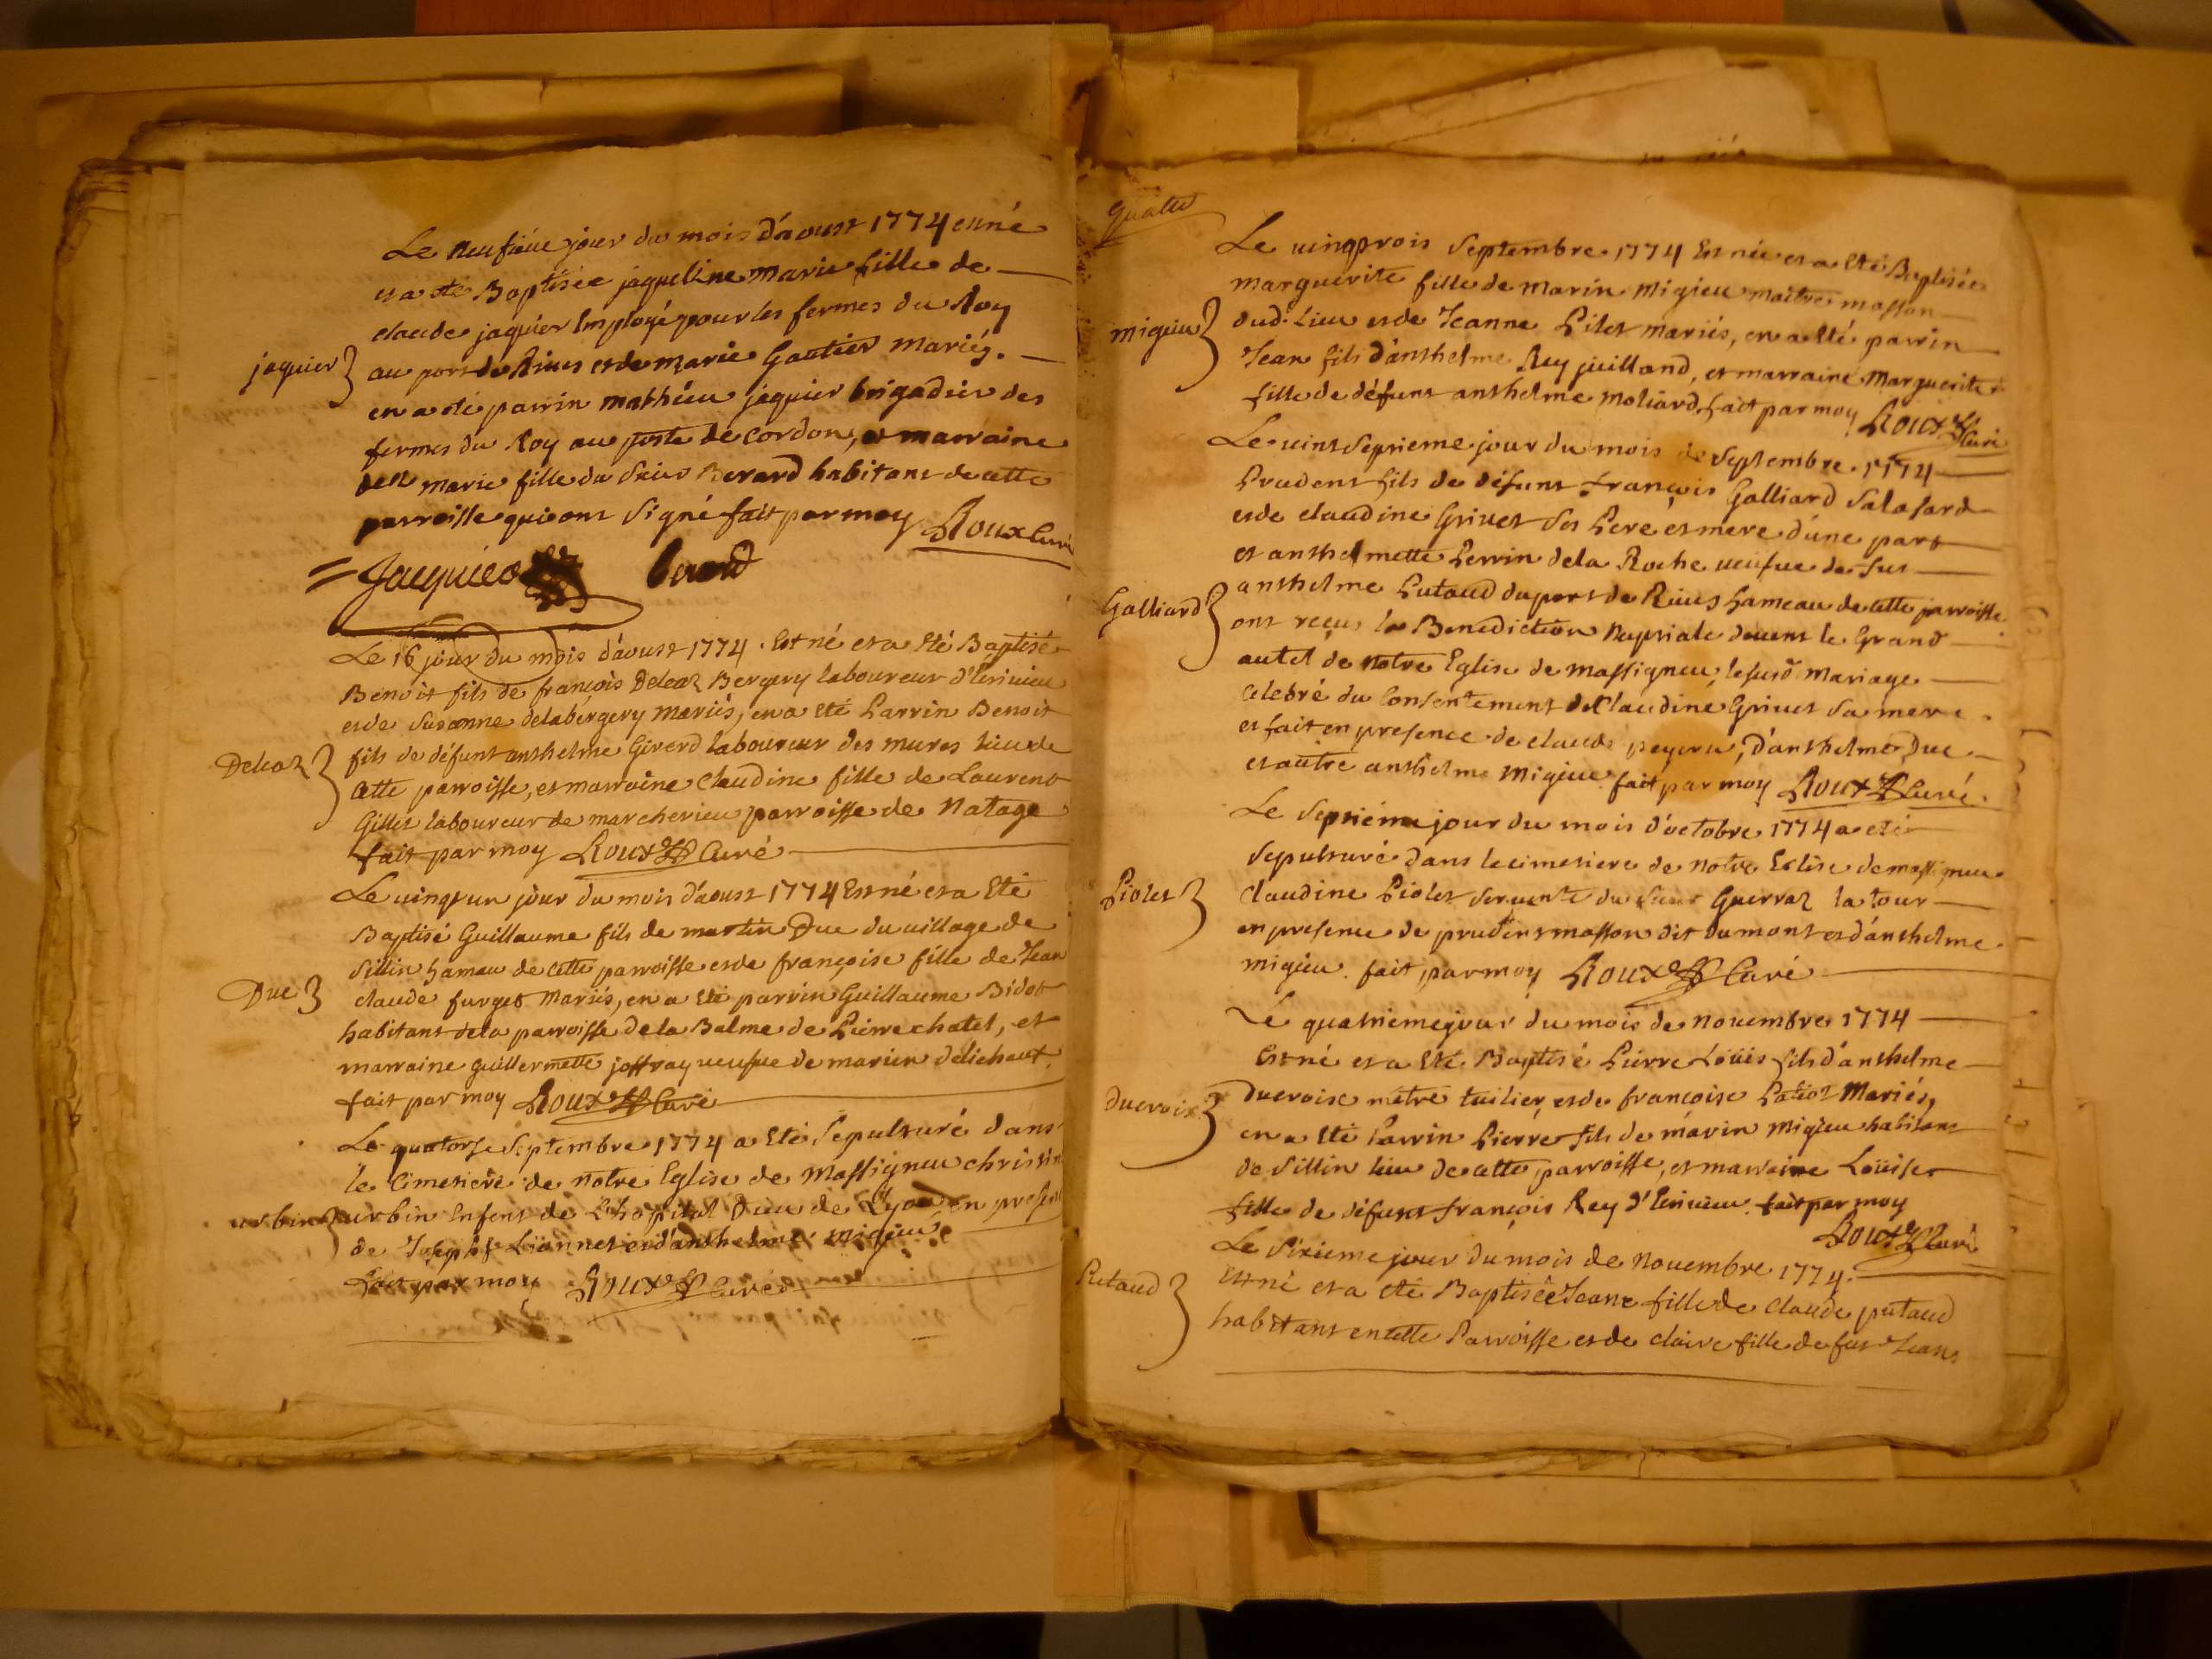 Le neufiéme jour du mois d'aoust 1774 est né
et a eté Baptisée jaqueline marie fille de
claude jaquier Employé pour les fermes du Roy
jaquier
au port de Rives et de marie Gautier mariés.
en a eté parrin mathieu jaquier brigadier des
fermes du Roy au poste de cordon, et marraine
dell marie fille du Sieur Berard habitant de cette
parroisse qui ont signé fait par moy Roux Curé
Jacquier berard
Le 16 jour du mois d'àoust 1774. Est né et a Eté Baptisé
Benoit fils de françois Deleaz Bergery laboureur d'
et de Susanne delabergery mariés, en a eté Parrin Benoit
Deleaz
fils de défunt anthelme Girerd laboureur des mures lieu de
cette parroisse, et marraine Claudine fille de Laurent
Gillet laboureur de marcherieu parroisse de Natage
fait par moy Roux Curé
Le vingt un jour du mois d'aoust 1774 Est né et a Eté
Baptisé Guillaume fils de martin Duc du village de
Sillin hameau de cette parroisse et de françoise fille de Jean
Duc
claude furget mariés, en a Eté parrin Guillaume Bidot
habitant de la parroisse de la Balme de Pierre chatel, et
marraine guillermette joffray veufue de marin delichaut.
fait par moy Roux Curé
Le quatorse Septembre 1774 a Eté Sepulturé dans
le Cimetiere de notre Eglise de Massigneu
urbin
urbin Enfent de L'hopital Dieu de Lyon en
de Joseph Lionnet et d'anthelme migieu
fait par moy Roux Curé
quatre
Le vingtrois Septembre 1774 Est née et a Eté Baptisée
marguerite fille de marin Migieu maitre masson
migieu
dud. Lieu et de Jeanne Pilet mariés, en a Eté parrin
Jean fils d'anthelme Rey juilland, et marraine Marguerite
fille de défunt anthelme moliard, fait par moy Roux Curé
Le vint Septieme jour du mois de Septembre. 1774
Prudent fils de défunt françois Galliard Salafard
et de claudine Grivet Ses Pere et mere d'une part
et anthelmette Perrin dela Roche veufue de fut
Galliard
anthelme Putaud du port de Rives hameau de cette parroisse
ont reçus la Benediction Nuptiale devent le Grand
autel de notre Eglise de massigneu, le susd mariage
celebré du Consentement de Claudine Grivet Sa mere
et fait en presence de claude , d'anthelme Duc
et autre anthelme Migieu. fait par moy Roux Curé.
Le Septiéme jour du mois d'octobre 1774 a eté
Sepulturé dans le cimetiere de notre Eglise de massigneu
Piolet
Claudine Piolet Servente du Sieur Guerraz la tour
en presence de prudent masson dit dumont et d'anthelme
migieu. fait par moy Roux Curé
Le quatriemejour du mois de novembre 1774
Est né et a Eté Baptisé Pierre Loüis fils d'anthelme
Ducroix
Ducroix mètre tuilier, et de françoise Patiot Mariés,
en a Eté Parrin Pierre fils de marin Migieu habitant
de Sillin lieu de cette parroisse, et marraine Loüise
fille de défunt françois Rey d' fait par moy
Roux Curé
Le Sixieme jour du mois de Novembre 1774.
Putaud
Est né et a eté Baptisée Jeane fille de Claude putaud
habitant en cette Parroisse et de claire fille de fut Jean